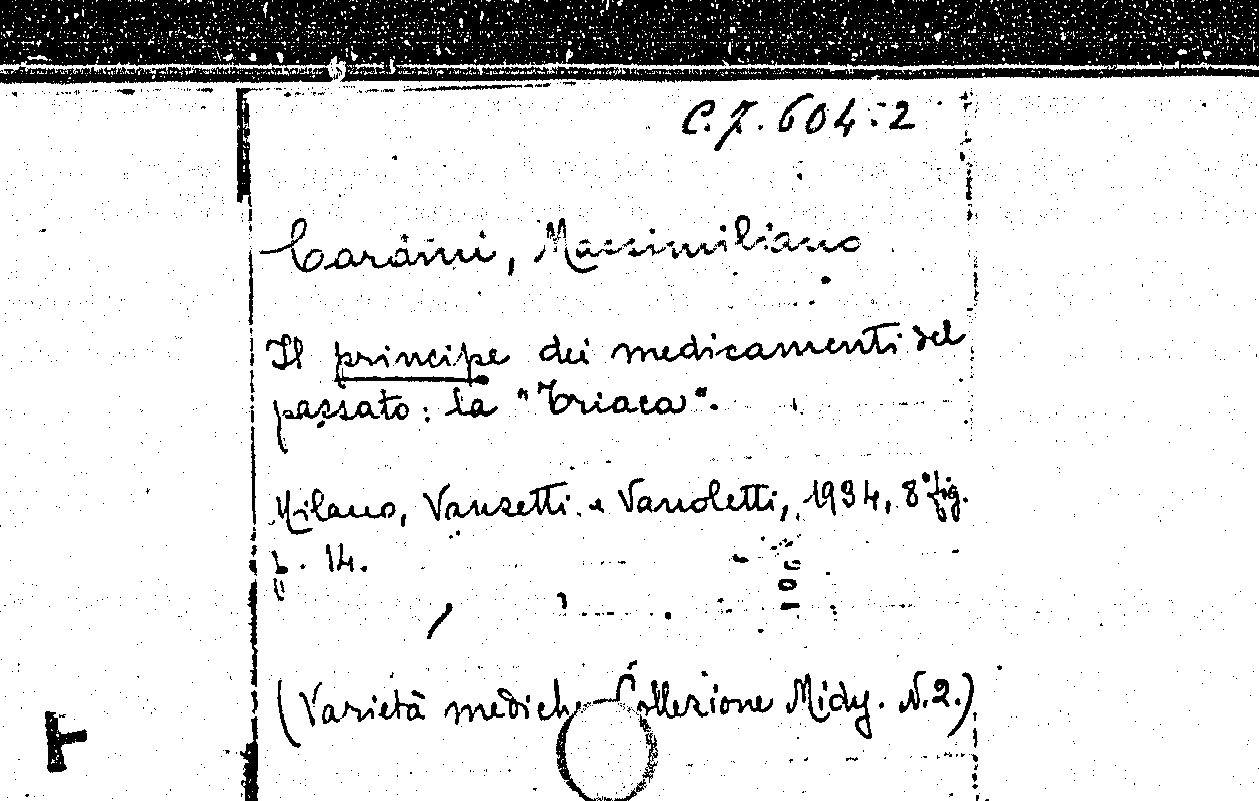 C.7.604:2
Cardini, Massimiliano
Il principe dei medicamenti del
passato: la "Triaca".
Milano, Vanzetti e Vanoletti, 1934, 8° fig.
p. 14.
(Varietà mediche Collezione Midy. N.2.)